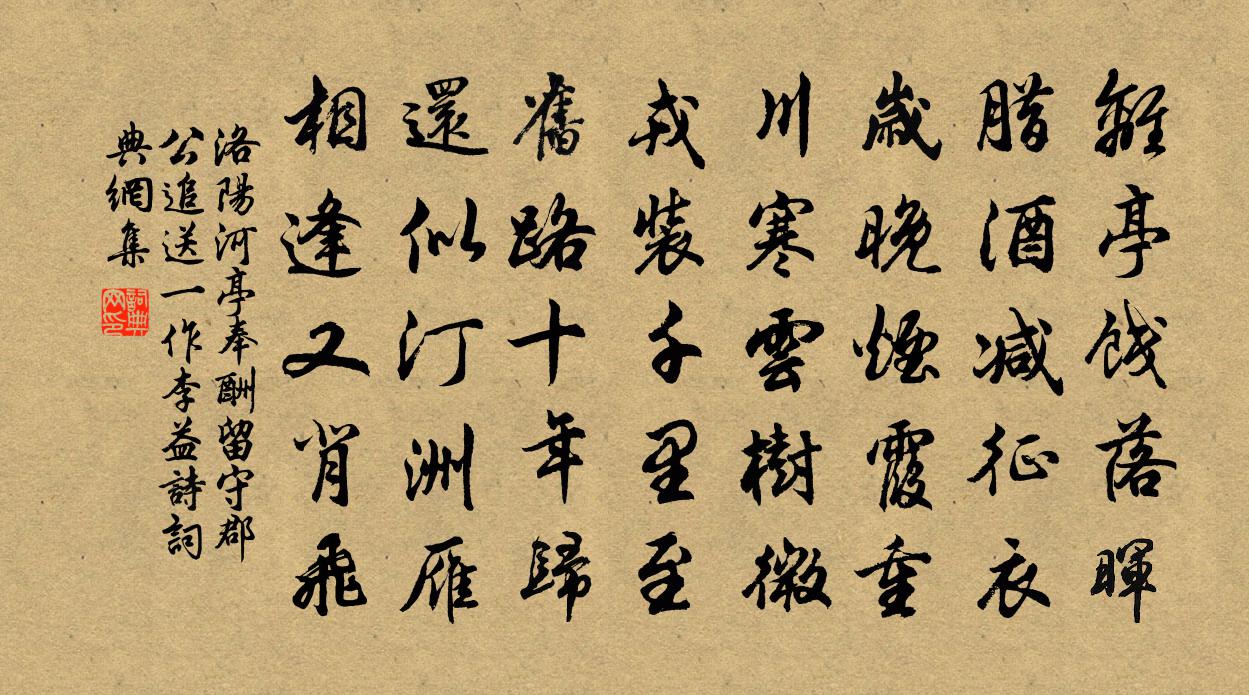 離亭餞落暉
腊酒减征衣
歲晚煙霞重
川寒雲樹微
戎裝千里至
舊路十年歸
還似汀洲雁
相逢又背飛
洛陽河亭奉酬留守郡
公追送一作李益詩詞
典網集
詞典
网印